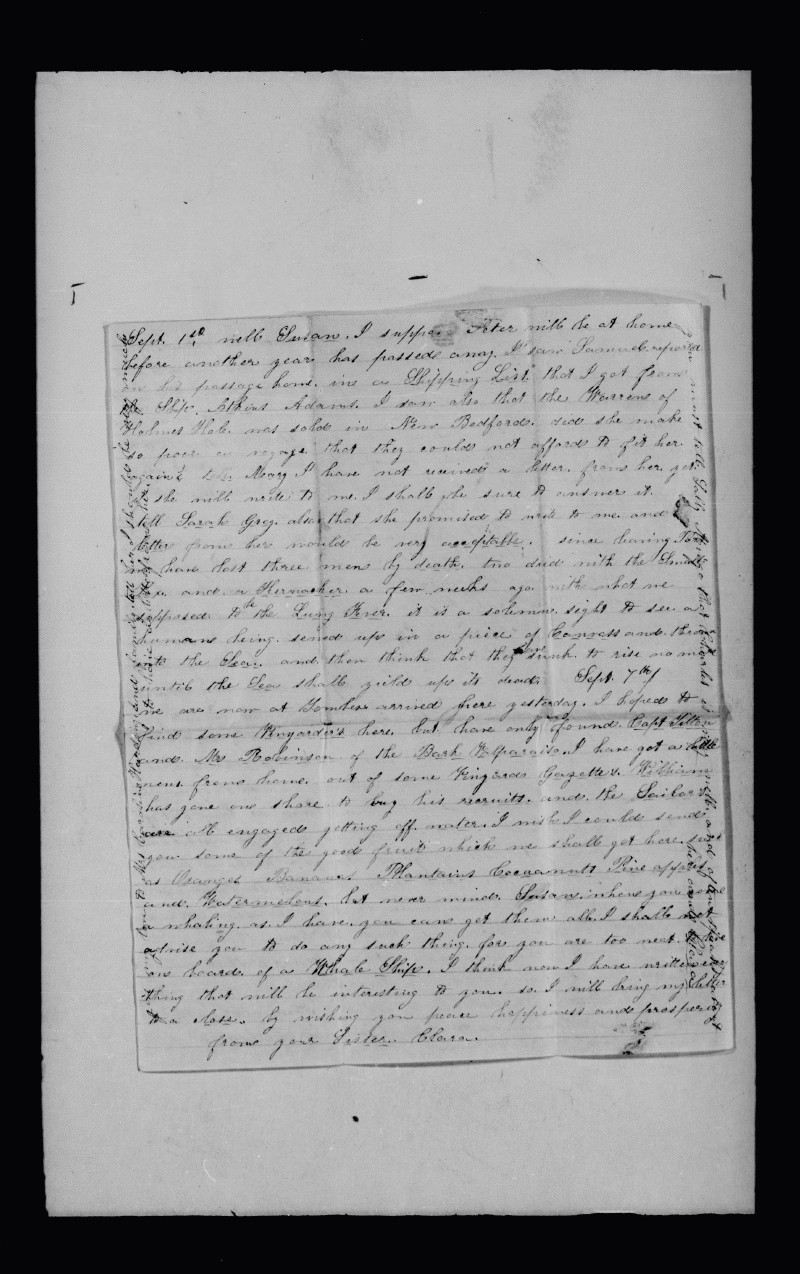 Sept. 1st well Susan. I suppose Peter will be at home
before another year has passed away. I saw Samuel reported
on his passage home. in a Shipping List that I got from
the Ship Atkins Adams. I saw also that the Warren of
Holmes Hole. was sold in New Bedford. did she make
so poor a voyage that they could not afford to fit her
again? tell Mary I have not recived a letter. from her yet
if she will write to me. I shall be sure to answer it.
tell Sarah Grey. also that she promised to write to me and
letter from her would be very acceptable. since leaving
we have lost three men by death. two died with the
and a a few weeks ago with what we
supposed to the Lung Fever. it is a solemn. sight to see a
human being. sewed up in a piece of Canvass and. thrown
into the Sea. and then think that they sunk. to rise no more
until the Sea shall yield up its dead. Sept. 7th/
we are now at Tombess arrived here yesterday. I hoped to
find some Vinyarders here. but have only found Capt Tilton
and Mrs Robinson of the Bark Valparaiso. I have got a little
news from home. out of some Vinyard Gazettes. William
has gone on shore to buy his recruits. and the Sailors
are all engaged getting off water. I wish I could send
you some of the good fruit which we shall get here. such
as Oranges Bananas Plantains Cocoanutt Pine apples
and Watermelons. but never mind. Susan. when you come
a whaling. as I have. you can get them all. I shall not
advise you to do any such thing. for you are too neat. to live
on board of a Whale Ship. I think now I have written every
thing that will be interesting to you. so I will bring my letter
to a close. by wishing you peace happiness and prosperity
from your Sister. Clara.
you must tell Sally that Charles is well. and often speaks